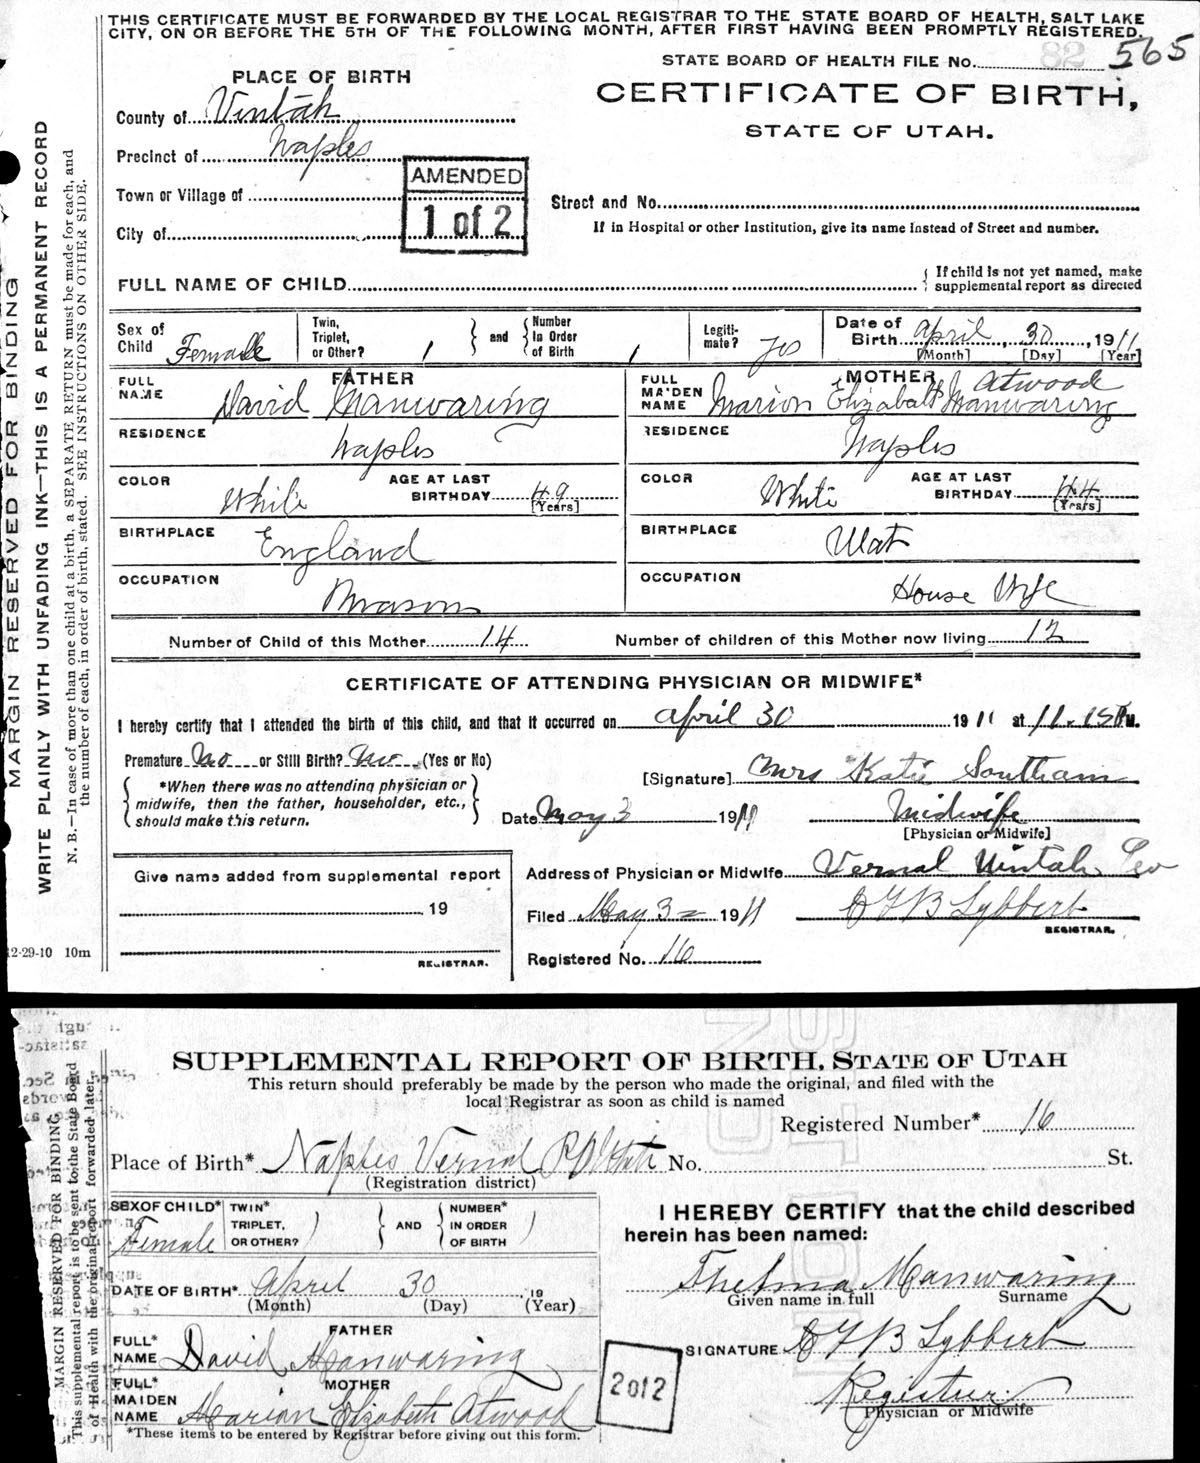 THIS CERTIFICATE MUST BE FORWARDED BY THE LOCAL REGISTRAR TO THE STATE BOARD OF HEALTH, SALT LAKE
CITY, ON OR BEFORE THE 5TH OF THE FOLLOWING MONTH, AFTER FIRST HAVING BEEN PROMPTLY REGISTERED.
STATE BOARD OF HEALTH FILE No. 82 565
PLACE OF BIRTH
CERTIFICATE OF BIRTH,
STATE OF UTAH.
County of Uintah
Precinct of Naples
Town or Village of
City of
AMENDED
1 of 2
Street and No.
If in Hospital or other Institution, give its name instead of Street and number.
FULL NAME OF CHILD
If child is not yet named, make
supplemental report as directed
Sex of Child Female
Twin, Triplet, or Other?
and
Number in Order of Birth
Legitimate? Yes
Date of Birth April 30, 1911
[Month] [Day] [Year]
FATHER
FULL NAME David Manwaring
RESIDENCE Naples
COLOR White
AGE AT LAST BIRTHDAY 49 [Years]
BIRTHPLACE England
OCCUPATION Mason
MOTHER
FULL MAIDEN NAME Marion Elizabeth Manwaring Atwood
RESIDENCE Naples
COLOR White
AGE AT LAST BIRTHDAY 44 [Years]
BIRTHPLACE Utah
OCCUPATION House Wife
Number of Child of this Mother 14 Number of children of this Mother now living 12
CERTIFICATE OF ATTENDING PHYSICIAN OR MIDWIFE*
I hereby certify that I attended the birth of this child, and that it occurred on April 30 1911 at 11.15 P.M.
Premature No or Still Birth? No (Yes or No)
*When there was no attending physician or
midwife, then the father, householder, etc.,
should make this return.
[Signature] Mrs Katie Southam
Date May 3 1911 Midwife
[Physician or Midwife]
Give name added from supplemental report
19
REGISTRAR.
Address of Physician or Midwife Vernal Uintah
Filed May 3 1911 C F B Lybbert
REGISTRAR.
Registered No. 16
12-29-10 10m
MARGIN RESERVED FOR BINDING
WRITE PLAINLY WITH UNFADING INK—THIS IS A PERMANENT RECORD
N. B.—In case of more than one child at a birth, a SEPARATE RETURN must be made for each, and
the number of each, in order of birth, stated. SEE INSTRUCTIONS ON OTHER SIDE.
SUPPLEMENTAL REPORT OF BIRTH, STATE OF UTAH
This return should preferably be made by the person who made the original, and filed with the
local Registrar as soon as child is named
Registered Number* 16
Place of Birth* Naples Vernal No. St.
(Registration district)
SEX OF CHILD* Female
TWIN* TRIPLET, OR OTHER?
AND
NUMBER* IN ORDER OF BIRTH
I HEREBY CERTIFY that the child described
herein has been named:
DATE OF BIRTH* April 30 19
(Month) (Day) (Year)
Thelma Manwaring
Given name in full Surname
FATHER
FULL* NAME David Manwaring
SIGNATURE C F B Lybbert
MOTHER
FULL* MAIDEN NAME Marian Elizabeth Atwood
2 of 2
Registrar
Physician or Midwife
*These items to be entered by Registrar before giving out this form.
MARGIN RESERVED FOR BINDING
This supplemental report is to be sent to the State Board
of Health with the original report forwarded later.